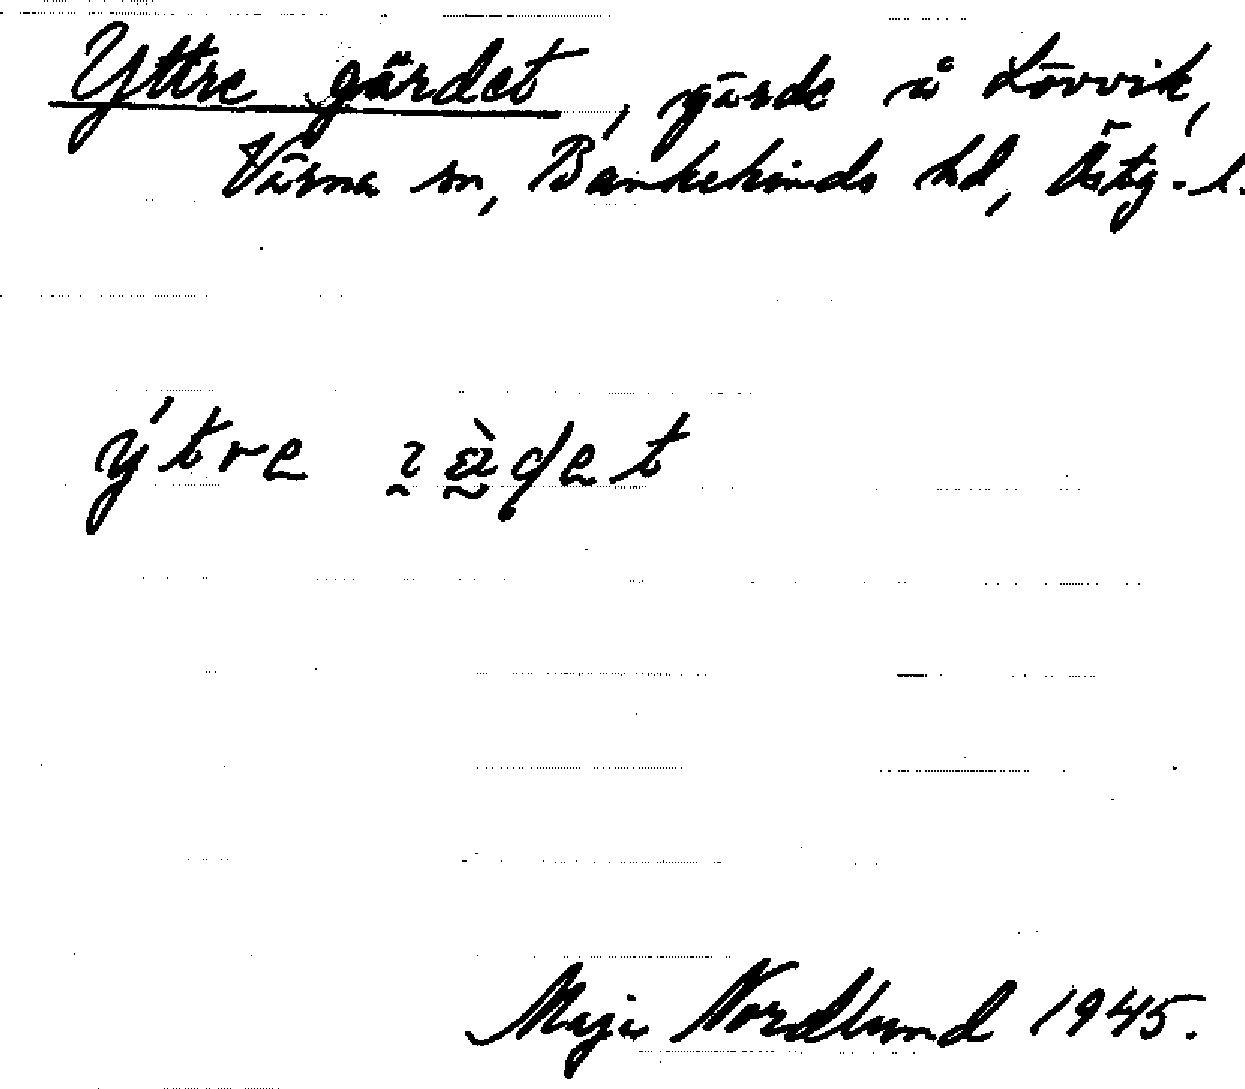 Yttre gärdet, gärde å Lövvik,
Värna sn, Bankekinds hd, Östg. l.
ýtre
Maja Nordlund 1945.